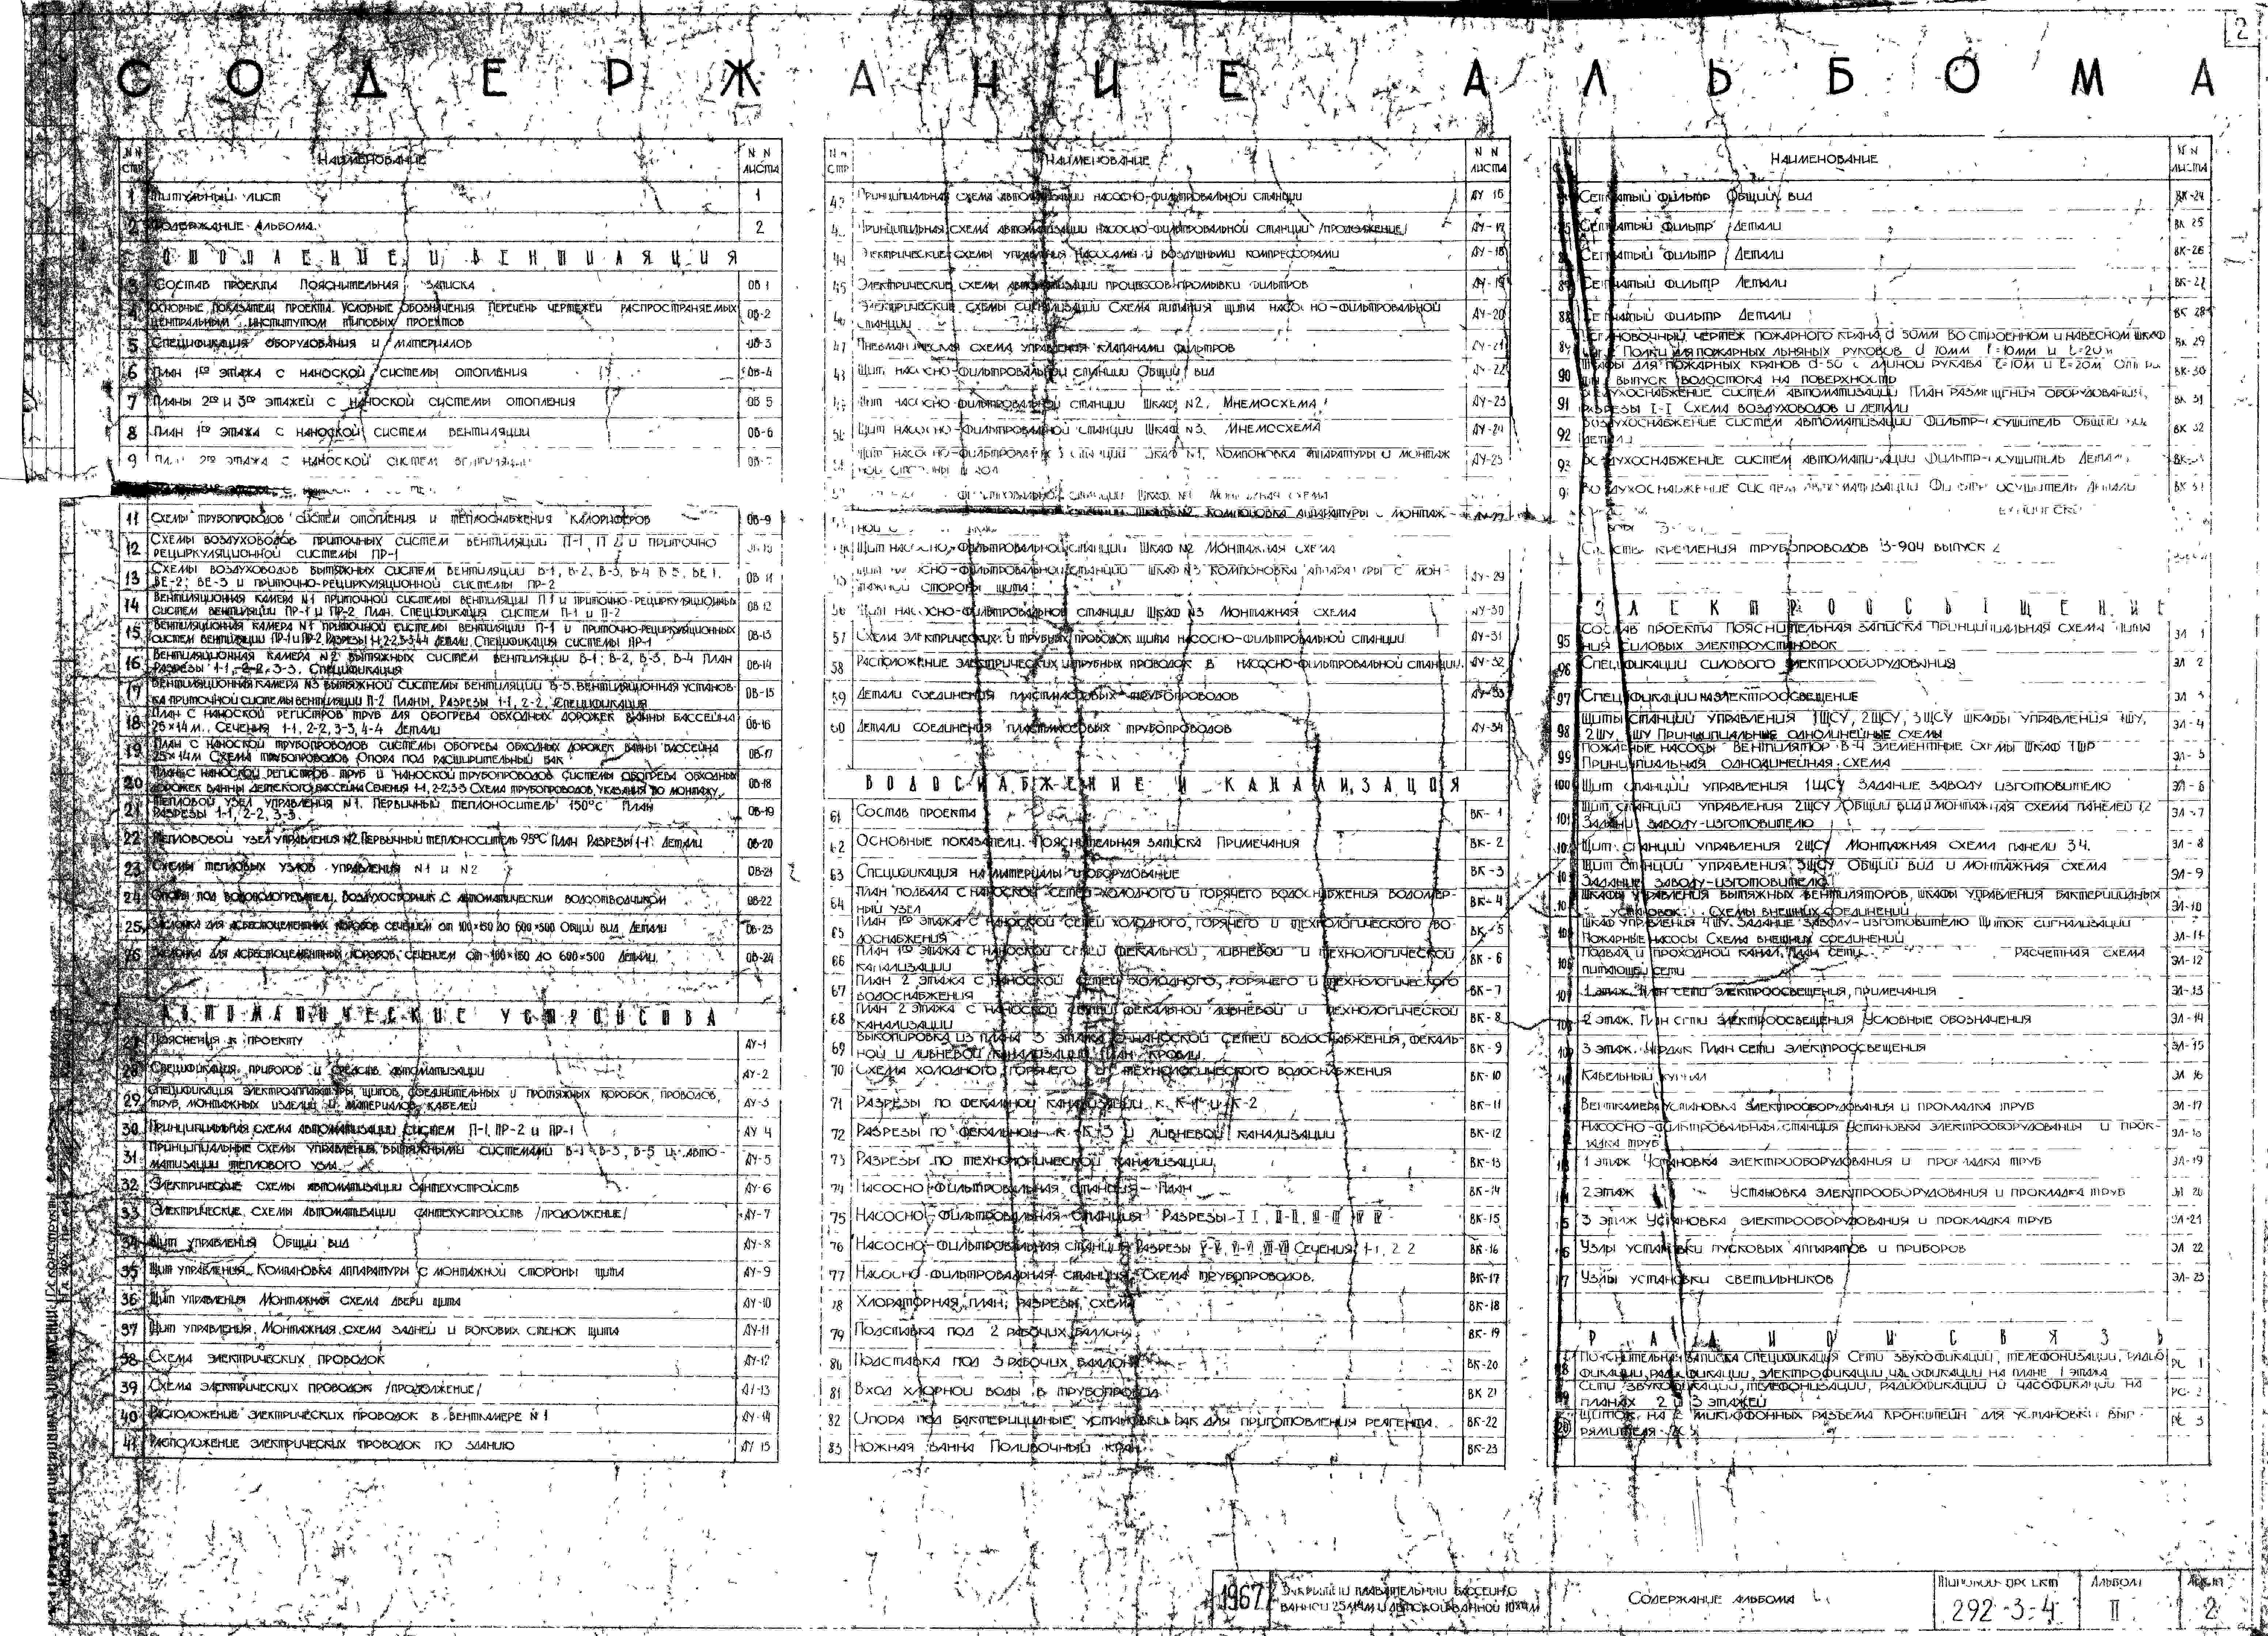 2
СОДЕРЖАНИЕ АЛЬБОМА
N N СТР НАИМЕНОВАНИЕ N N ЛИСТА
1 ТИТУЛЬНЫЙ ЛИСТ 1
2 СОДЕРЖАНИЕ АЛЬБОМА. 2
ОТОПЛЕНИЕ И ВЕНТИЛЯЦИЯ
3 СОСТАВ ПРОЕКТА ПОЯСНИТЕЛЬНАЯ ЗАПИСКА ОВ-1
4 ОСНОВНЫЕ ПОКАЗАТЕЛИ ПРОЕКТА. УСЛОВНЫЕ ОБОЗНАЧЕНИЯ ПЕРЕЧЕНЬ ЧЕРТЕЖЕЙ РАСПРОСТРАНЯЕМЫХ ОВ-2
ЦЕНТРАЛЬНЫМ ИНСТИТУТОМ ТИПОВЫХ ПРОЕКТОВ
5 СПЕЦИФИКАЦИЯ ОБОРУДОВАНИЯ И МАТЕРИАЛОВ ОВ-3
6 ПЛАН 1ГО ЭТАЖА С НАНОСКОЙ СИСТЕМЫ ОТОПЛЕНИЯ ОВ-4
7 ПЛАНЫ 2ГО И 3ГО ЭТАЖЕЙ С НАНОСКОЙ СИСТЕМЫ ОТОПЛЕНИЯ ОВ 5
8 ПЛАН 1ГО ЭТАЖА С НАНОСКОЙ СИСТЕМ ВЕНТИЛЯЦИИ ОВ-6
9 ПЛАН 2ГО ЭТАЖА С НАНОСКОЙ СИСТЕМ ВЕНТИЛЯЦИИ ОВ-7
11 СХЕМЫ ТРУБОПРОВОДОВ СИСТЕМ ОТОПЛЕНИЯ И ТЕПЛОСНАБЖЕНИЯ КАЛОРИФЕРОВ ОВ-9
12 СХЕМЫ ВОЗДУХОВОДОВ ПРИТОЧНЫХ СИСТЕМ ВЕНТИЛЯЦИИ П-1, П 2 И ПРИТОЧНО
РЕЦИРКУЛЯЦИОННОЙ СИСТЕМЫ ПР-1
13 СХЕМЫ ВОЗДУХОВОДОВ ВЫТЯЖНЫХ СИСТЕМ ВЕНТИЛЯЦИИ В-1, В-2, В-3, В-4 В 5, ВЕ 1, ОВ 11
ВЕ-2; ВЕ-3 И ПРИТОЧНО-РЕЦИРКУЛЯЦИОННОЙ СИСТЕМЫ ПР-2
14 ВЕНТИЛЯЦИОННАЯ КАМЕРА N1 ПРИТОЧНОЙ СИСТЕМЫ ВЕНТИЛЯЦИИ П 1 И ПРИТОЧНО-РЕЦИРКУЛЯЦИОННЫХ ОВ 12
СИСТЕМ ВЕНТИЛЯЦИИ ПР-1 И ПР-2 ПЛАН. СПЕЦИФИКАЦИЯ СИСТЕМ П-1 И П-2
15 ВЕНТИЛЯЦИОННАЯ КАМЕРА N1 ПРИТОЧНОЙ СИСТЕМЫ ВЕНТИЛЯЦИИ П-1 И ПРИТОЧНО-РЕЦИРКУЛЯЦИОННЫХ ОВ-13
СИСТЕМ ВЕНТИЛЯЦИИ ПР-1 И ПР-2 РАЗРЕЗЫ 1-1, 2-2, 3-3 4-4 ДЕТАЛИ. СПЕЦИФИКАЦИЯ СИСТЕМЫ ПР-1
16 ВЕНТИЛЯЦИОННАЯ КАМЕРА N2 ВЫТЯЖНЫХ СИСТЕМ ВЕНТИЛЯЦИИ В-1; В-2, В-3, В-4 ПЛАН ОВ-14
РАЗРЕЗЫ 1-1, 2-2, 3-3. СПЕЦИФИКАЦИЯ
17 ВЕНТИЛЯЦИОННАЯ КАМЕРА N3 ВЫТЯЖНОЙ СИСТЕМЫ ВЕНТИЛЯЦИИ В-5. ВЕНТИЛЯЦИОННАЯ УСТАНОВ- ОВ-15
КА ПРИТОЧНОЙ СИСТЕМЫ ВЕНТИЛЯЦИИ П-2 ПЛАНЫ, РАЗРЕЗЫ 1-1, 2-2, СПЕЦИФИКАЦИЯ
18 ПЛАН С НАНОСКОЙ РЕГИСТРОВ ТРУБ ДЛЯ ОБОГРЕВА ОБХОДНЫХ ДОРОЖЕК ВАННЫ БАССЕЙНА ОВ-16
25×14 М. СЕЧЕНИЯ 1-1, 2-2, 3-3, 4-4 ДЕТАЛИ
19 ПЛАН С НАНОСКОЙ ТРУБОПРОВОДОВ СИСТЕМЫ ОБОГРЕВА ОБХОДНЫХ ДОРОЖЕК ВАННЫ БАССЕЙНА ОВ-17
25×14М СХЕМА ТРУБОПРОВОДОВ ОПОРА ПОД РАСШИРИТЕЛЬНЫЙ БАК
20 ПЛАН С НАНОСКОЙ РЕГИСТРОВ ТРУБ И НАНОСКОЙ ТРУБОПРОВОДОВ СИСТЕМЫ ОБОГРЕВА ОБХОДНЫХ ОВ-18
ДОРОЖЕК ВАННЫ ДЕТСКОГО БАССЕЙНА СЕЧЕНИЯ 1-1, 2-2, 3-3 СХЕМА ТРУБОПРОВОДОВ, УКАЗАНИЯ ПО МОНТАЖУ.
21 ТЕПЛОВОЙ УЗЕЛ УПРАВЛЕНИЯ N1. ПЕРВИЧНЫЙ ТЕПЛОНОСИТЕЛЬ 150°С ПЛАН ОВ-19
РАЗРЕЗЫ 1-1, 2-2, 3-3.
22 ТЕПЛОВОВОЙ УЗЕЛ УПРАВЛЕНИЯ N2. ПЕРВИЧНЫЙ ТЕПЛОНОСИТЕЛЬ 95°С ПЛАН РАЗРЕЗЫ 1-1 ДЕТАЛИ ОВ-20
23 СХЕМЫ ТЕПЛОВЫХ УЗЛОВ УПРАВЛЕНИЯ N1 И N2 ОВ-21
24 ОПОРЫ ПОД ВОДОВОДОГРЕВАТЕЛИ, ВОЗДУХОСБОРНИК С АВТОМАТИЧЕСКИМ ВОДООТВОДЧИКОМ ОВ-22
25 ЗАСЛОНКА ДЛЯ АСБЕСТОЦЕМЕНТНЫХ КОРОБОВ СЕЧЕНИЕМ ОТ 100×150 ДО 600×500 ОБЩИЙ ВИД, ДЕТАЛИ ОВ-23
26 ЗАСЛОНКА ДЛЯ АСБЕСТОЦЕМЕНТНЫХ КОРОБОВ, СЕЧЕНИЕМ ОТ 100×150 ДО 600×500 ДЕТАЛИ. ОВ-24
АВТОМАТИЧЕСКИЕ УСТРОЙСТВА
27 ПОЯСНЕНИЯ К ПРОЕКТУ АУ-1
28 СПЕЦИФИКАЦИЯ ПРИБОРОВ И СРЕДСТВ АВТОМАТИЗАЦИИ АУ-2
29 СПЕЦИФИКАЦИЯ ЭЛЕКТРОАППАРАТУРЫ, ЩИТОВ, СОЕДИНИТЕЛЬНЫХ И ПРОТЯЖНЫХ КОРОБОК, ПРОВОДОВ, АУ-3
ТРУБ, МОНТАЖНЫХ ИЗДЕЛИЙ И МАТЕРИАЛОВ, КАБЕЛЕЙ
30 ПРИНЦИПИАЛЬНАЯ СХЕМА АВТОМАТИЗАЦИИ СИСТЕМ П-1, ПР-2 И ПР-1 АУ 4
31 ПРИНЦИПИАЛЬНЫЕ СХЕМЫ УПРАВЛЕНИЯ ВЫТЯЖНЫМИ СИСТЕМАМИ В-1 В-3, В-5 И АВТО- АУ-5
МАТИЗАЦИИ ТЕПЛОВОГО УЗЛА
32 ЭЛЕКТРИЧЕСКИЕ СХЕМЫ АВТОМАТИЗАЦИИ САНТЕХУСТРОЙСТВ АУ-6
33 ЭЛЕКТРИЧЕСКИЕ СХЕМЫ АВТОМАТИЗАЦИИ САНТЕХУСТРОЙСТВ /ПРОДОЛЖЕНИЕ/ АУ-7
34 ЩИТ УПРАВЛЕНИЯ ОБЩИЙ ВИД АУ-8
35 ЩИТ УПРАВЛЕНИЯ. КОМПАНОВКА АППАРАТУРЫ С МОНТАЖНОЙ СТОРОНЫ ЩИТА АУ-9
36 ЩИТ УПРАВЛЕНИЯ МОНТАЖНАЯ СХЕМА ДВЕРИ ЩИТА АУ-10
37 ЩИТ УПРАВЛЕНИЯ, МОНТАЖНАЯ СХЕМА ЗАДНЕЙ И БОКОВЫХ СТЕНОК ЩИТА АУ-11
38 СХЕМА ЭЛЕКТРИЧЕСКИХ ПРОВОДОК АУ-12
39 СХЕМА ЭЛЕКТРИЧЕСКИХ ПРОВОДОК /ПРОДОЛЖЕНИЕ/ АУ-13
40 РАСПОЛОЖЕНИЕ ЭЛЕКТРИЧЕСКИХ ПРОВОДОК В ВЕНТКАМЕРЕ N 1 АУ-14
41 РАСПОЛОЖЕНИЕ ЭЛЕКТРИЧЕСКИХ ПРОВОДОК ПО ЗДАНИЮ АУ 15
N N СТР НАИМЕНОВАНИЕ N N ЛИСТА
42 ПРИНЦИПИАЛЬНАЯ СХЕМА АВТОМАТИЗАЦИИ НАСОСНО-ФИЛЬТРОВАЛЬНОЙ СТАНЦИИ АУ 16
ПРИНЦИПИАЛЬНАЯ СХЕМА АВТОМАТИЗАЦИИ НАСОСНО-ФИЛЬТРОВАЛЬНОЙ СТАНЦИИ /ПРОДОЛЖЕНИЕ/ АУ-17
44 ЭЛЕКТРИЧЕСКИЕ СХЕМЫ УПРАВЛЕНИЯ НАСОСАМИ И ВОЗДУШНЫМИ КОМПРЕССОРАМИ АУ-18
45 ЭЛЕКТРИЧЕСКИЕ СХЕМЫ АВТОМАТИЗАЦИИ ПРОЦЕССОВ ПРОМЫВКИ ФИЛЬТРОВ АУ-19
46 ЭЛЕКТРИЧЕСКИЕ СХЕМЫ СИГНАЛИЗАЦИИ СХЕМА ПИТАНИЯ ЩИТА НАСОСНО-ФИЛЬТРОВАЛЬНОЙ АУ-20
СТАНЦИИ
47 ПНЕВМАТИЧЕСКАЯ СХЕМА УПРАВЛЕНИЯ КЛАПАНАМИ ФИЛЬТРОВ АУ-21
48 ЩИТ НАСОСНО-ФИЛЬТРОВАЛЬНОЙ СТАНЦИИ ОБЩИЙ ВИД АУ-22
ЩИТ НАСОСНО-ФИЛЬТРОВАЛЬНОЙ СТАНЦИИ ШКАФ N2, МНЕМОСХЕМА АУ-23
50 ЩИТ НАСОСНО-ФИЛЬТРОВАЛЬНОЙ СТАНЦИИ ШКАФ N3, МНЕМОСХЕМА АУ-24
ЩИТ НАСОСНО-ФИЛЬТРОВАЛЬНОЙ СТАНЦИИ ШКАФ N1, КОМПОНОВКА АППАРАТУРЫ И МОНТАЖ АУ-25
ФИЛЬТРОВАЛЬНОЙ СТАНЦИИ ШКАФ N1 МОНТАЖНАЯ СХЕМА
ШКАФ N2 КОМПОНОВКА АППАРАТУРЫ С МОНТАЖ-
НОЙ
ЩИТ НАСОСНО-ФИЛЬТРОВАЛЬНОЙ СТАНЦИИ ШКАФ N2 МОНТАЖНАЯ СХЕМА
ЩИТ НАСОСНО-ФИЛЬТРОВАЛЬНОЙ СТАНЦИИ ШКАФ N3 КОМПОНОВКА АППАРАТУРЫ С МОН- АУ-29
ТАЖНОЙ СТОРОНЫ ЩИТА
56 ЩИТ НАСОСНО-ФИЛЬТРОВАЛЬНОЙ СТАНЦИИ ШКАФ N3 МОНТАЖНАЯ СХЕМА АУ-30
57 СХЕМА ЭЛЕКТРИЧЕСКИХ И ТРУБНЫХ ПРОВОДОК ЩИТА НАСОСНО-ФИЛЬТРОВАЛЬНОЙ СТАНЦИИ АУ-31
58 РАСПОЛОЖЕНИЕ ЭЛЕКТРИЧЕСКИХ И ТРУБНЫХ ПРОВОДОК В НАСОСНО-ФИЛЬТРОВАЛЬНОЙ СТАНЦИИ. АУ-32
59 ДЕТАЛИ СОЕДИНЕНИЯ ПЛАСТМАССОВЫХ ТРУБОПРОВОДОВ АУ-33
60 ДЕТАЛИ СОЕДИНЕНИЯ ПЛАСТМАССОВЫХ ТРУБОПРОВОДОВ АУ-34
ВОДОСНАБЖЕНИЕ И КАНАЛИЗАЦИЯ
61 СОСТАВ ПРОЕКТА ВК-1
62 ОСНОВНЫЕ ПОКАЗАТЕЛИ. ПОЯСНИТЕЛЬНАЯ ЗАПИСКА ПРИМЕЧАНИЯ ВК-2
63 СПЕЦИФИКАЦИЯ НА МАТЕРИАЛЫ И ОБОРУДОВАНИЕ ВК-3
64 ПЛАН ПОДВАЛА С НАНОСКОЙ СЕТЕЙ ХОЛОДНОГО И ГОРЯЧЕГО ВОДОСНАБЖЕНИЯ ВОДОМЕР- ВК-4
НЫЙ УЗЕЛ
65 ПЛАН 1ГО ЭТАЖА С НАНОСКОЙ СЕТЕЙ ХОЛОДНОГО, ГОРЯЧЕГО И ТЕХНОЛОГИЧЕСКОГО ВО- ВК-5
ДОСНАБЖЕНИЯ
66 ПЛАН 1ГО ЭТАЖА С НАНОСКОЙ СЕТЕЙ ФЕКАЛЬНОЙ, ЛИВНЕВОЙ И ТЕХНОЛОГИЧЕСКОЙ ВК-6
КАНАЛИЗАЦИИ
67 ПЛАН 2 ЭТАЖА С НАНОСКОЙ СЕТЕЙ ХОЛОДНОГО, ГОРЯЧЕГО И ТЕХНОЛОГИЧЕСКОГО ВК-7
ВОДОСНАБЖЕНИЯ
68 ПЛАН 2 ЭТАЖА С НАНОСКОЙ СЕТЕЙ ФЕКАЛЬНОЙ ЛИВНЕВОЙ И ТЕХНОЛОГИЧЕСКОЙ ВК-8
КАНАЛИЗАЦИИ
69 ВЫКОПИРОВКА ИЗ ПЛАНА 3 ЭТАЖА С НАНОСКОЙ СЕТЕЙ ВОДОСНАБЖЕНИЯ, ФЕКАЛЬ- ВК-9
НОЙ И ЛИВНЕВОЙ КАНАЛИЗАЦИИ ПЛАН КРОВЛИ.
70 СХЕМА ХОЛОДНОГО, ГОРЯЧЕГО И ТЕХНОЛОГИЧЕСКОГО ВОДОСНАБЖЕНИЯ ВК-10
71 РАЗРЕЗЫ ПО ФЕКАЛЬНОЙ КАНАЛИЗАЦИИ К. К-1 И К-2 ВК-11
72 РАЗРЕЗЫ ПО ФЕКАЛЬНОЙ К. К-3 И ЛИВНЕВОЙ КАНАЛИЗАЦИИ ВК-12
73 РАЗРЕЗЫ ПО ТЕХНОЛОГИЧЕСКОЙ КАНАЛИЗАЦИИ ВК-13
74 НАСОСНО-ФИЛЬТРОВАЛЬНАЯ СТАНЦИЯ ПЛАН ВК-14
75 НАСОСНО-ФИЛЬТРОВАЛЬНАЯ СТАНЦИЯ РАЗРЕЗЫ I I, II-II, III-III IV IV ВК-15
76 НАСОСНО-ФИЛЬТРОВАЛЬНАЯ СТАНЦИЯ РАЗРЕЗЫ V-V, VI-VI, VII-VII СЕЧЕНИЯ 1-1, 2 2 ВК-16
77 НАСОСНО ФИЛЬТРОВАЛЬНАЯ СТАНЦИЯ, СХЕМА ТРУБОПРОВОДОВ. ВК-17
78 ХЛОРАТОРНАЯ, ПЛАН, РАЗРЕЗЫ, СХЕМА ВК-18
79 ПОДСТАВКА ПОД 2 РАБОЧИХ БАЛЛОНА ВК-19
80 ПОДСТАВКА ПОД 3 РАБОЧИХ БАЛЛОНА ВК-20
81 ВХОД ХЛОРНОЙ ВОДЫ В ТРУБОПРОВОД ВК 21
82 ОПОРА ПОД БАКТЕРИЦИДНЫЕ УСТАНОВКИ БАК ДЛЯ ПРИГОТОВЛЕНИЯ РЕАГЕНТА. ВК-22
83 НОЖНАЯ ВАННА ПОЛИВОЧНЫЙ КРАН ВК-23
НАИМЕНОВАНИЕ N N ЛИСТА
СЕТЧАТЫЙ ФИЛЬТР ОБЩИЙ ВИД ВК-24
СЕТЧАТЫЙ ФИЛЬТР ДЕТАЛИ ВК 25
СЕТЧАТЫЙ ФИЛЬТР ДЕТАЛИ ВК-26
СЕТЧАТЫЙ ФИЛЬТР ДЕТАЛИ ВК-27
88 СЕТЧАТЫЙ ФИЛЬТР ДЕТАЛИ ВК 28
УСТАНОВОЧНЫЙ ЧЕРТЕЖ ПОЖАРНОГО КРАНА d 50ММ ВО ВСТРОЕННОМ И НАВЕСНОМ ШКАФ ВК 29
ПОЛКИ ДЛЯ ПОЖАРНЫХ ЛЬНЯНЫХ РУКОВОВ
90 ШКАФЫ ДЛЯ ПОЖАРНЫХ КРАНОВ d-50 С ДЛИНОЙ РУКАВА ℓ=10М И ℓ=20М ВК-30
ВЫПУСК ВОДОСТОКА НА ПОВЕРХНОСТЬ
91 ВОЗДУХОСНАБЖЕНИЕ СИСТЕМ АВТОМАТИЗАЦИИ ПЛАН РАЗМЕЩЕНИЯ ОБОРУДОВАНИЯ, ВК 31
РАЗРЕЗЫ I-I СХЕМА ВОЗДУХОВОДОВ И ДЕТАЛИ
92 ВОЗДУХОСНАБЖЕНИЕ СИСТЕМ АВТОМАТИЗАЦИИ ФИЛЬТР-ОСУШИТЕЛЬ ОБЩИЙ ВИД ВК 32
ДЕТАЛИ
93 ВОЗДУХОСНАБЖЕНИЕ СИСТЕМ АВТОМАТИЗАЦИИ ФИЛЬТР-ОСУШИТЕЛЬ ДЕТАЛИ
ВОЗДУХОСНАБЖЕНИЕ СИСТЕМ АВТОМАТИЗАЦИИ ФИЛЬТР ОСУШИТЕЛЬ ДЕТАЛИ
КРЕПЛЕНИЯ ТРУБОПРОВОДОВ 3-904 ВЫПУСК 2
ЭЛЕКТРООСВЕЩЕНИЕ
95 СОСТАВ ПРОЕКТА ПОЯСНИТЕЛЬНАЯ ЗАПИСКА ПРИНЦИПИАЛЬНАЯ СХЕМА ПИТА ЭЛ 1
НИЯ СИЛОВЫХ ЭЛЕКТРОУСТАНОВОК
96 СПЕЦИФИКАЦИИ СИЛОВОГО ЭЛЕКТРООБОРУДОВАНИЯ ЭЛ 2
97 СПЕЦИФИКАЦИИ НА ЭЛЕКТРООСВЕЩЕНИЕ ЭЛ 3
98 ЩИТЫ СТАНЦИЙ УПРАВЛЕНИЯ 1ЩСУ, 2ЩСУ, 3ЩСУ ШКАФЫ УПРАВЛЕНИЯ 1ШУ, ЭЛ-4
2ШУ, ШУ ПРИНЦИПИАЛЬНЫЕ ОДНОЛИНЕЙНЫЕ СХЕМЫ
99 ПОЖАРНЫЕ НАСОСЫ ВЕНТИЛЯТОР В-4 ЭЛЕМЕНТНЫЕ СХЕМЫ ШКАФ 1ШР ЭЛ-5
ПРИНЦИПИАЛЬНАЯ ОДНОЛИНЕЙНАЯ СХЕМА
100 ЩИТ СТАНЦИЙ УПРАВЛЕНИЯ 1ЩСУ ЗАДАНИЕ ЗАВОДУ ИЗГОТОВИТЕЛЮ ЭЛ-6
101 ЩИТ СТАНЦИЙ УПРАВЛЕНИЯ 2ЩСУ ОБЩИЙ ВИД И МОНТАЖНАЯ СХЕМА ПАНЕЛЕЙ 1,2 ЭЛ-7
ЗАДАНИЕ ЗАВОДУ-ИЗГОТОВИТЕЛЮ
ЩИТ СТАНЦИЙ УПРАВЛЕНИЯ 2ЩСУ МОНТАЖНАЯ СХЕМА ПАНЕЛИ 3 4. ЭЛ-8
ЩИТ СТАНЦИЙ УПРАВЛЕНИЯ 3ЩСУ ОБЩИЙ ВИД И МОНТАЖНАЯ СХЕМА ЭЛ-9
ЗАДАНИЕ ЗАВОДУ-ИЗГОТОВИТЕЛЮ
ШКАФЫ УПРАВЛЕНИЯ ВЫТЯЖНЫХ ВЕНТИЛЯТОРОВ, ШКАФЫ УПРАВЛЕНИЯ БАКТЕРИЦИДНЫХ ЭЛ-10
УСТАНОВОК. СХЕМЫ ВНЕШНИХ СОЕДИНЕНИЙ
ШКАФ УПРАВЛЕНИЯ 4ШУ. ЗАДАНИЕ ЗАВОДУ-ИЗГОТОВИТЕЛЮ ЩИТОК СИГНАЛИЗАЦИИ ЭЛ-11
ПОЖАРНЫЕ НАСОСЫ СХЕМА ВНЕШНИХ СОЕДИНЕНИЙ
ПОДВАЛ И ПРОХОДНОЙ КАНАЛ, ПЛАН СЕТИ РАСЧЕТНАЯ СХЕМА ЭЛ-12
ПИТАЮЩЕЙ СЕТИ
1 ЭТАЖ. ПЛАН СЕТИ ЭЛЕКТРООСВЕЩЕНИЯ, ПРИМЕЧАНИЯ ЭЛ-13
2 ЭТАЖ. ПЛАН СЕТИ ЭЛЕКТРООСВЕЩЕНИЯ УСЛОВНЫЕ ОБОЗНАЧЕНИЯ ЭЛ-14
3 ЭТАЖ. ЧЕРДАК ПЛАН СЕТИ ЭЛЕКТРООСВЕЩЕНИЯ ЭЛ-15
КАБЕЛЬНЫЙ ЖУРНАЛ ЭЛ 16
ВЕНТКАМЕРА УСТАНОВКА ЭЛЕКТРООБОРУДОВАНИЯ И ПРОКЛАДКА ТРУБ ЭЛ-17
НАСОСНО-ФИЛЬТРОВАЛЬНАЯ СТАНЦИЯ УСТАНОВКА ЭЛЕКТРООБОРУДОВАНИЯ И ПРОК- ЭЛ-18
ЛАДКА ТРУБ
1 ЭТАЖ УСТАНОВКА ЭЛЕКТРООБОРУДОВАНИЯ И ПРОКЛАДКА ТРУБ ЭЛ-19
2 ЭТАЖ УСТАНОВКА ЭЛЕКТРООБОРУДОВАНИЯ И ПРОКЛАДКА ТРУБ ЭЛ 20
3 ЭТАЖ УСТАНОВКА ЭЛЕКТРООБОРУДОВАНИЯ И ПРОКЛАДКА ТРУБ ЭЛ-21
УЗЛЫ УСТАНОВКИ ПУСКОВЫХ АППАРАТОВ И ПРИБОРОВ ЭЛ 22
УЗЛЫ УСТАНОВКИ СВЕТИЛЬНИКОВ ЭЛ-23
РАДИОСВЯЗЬ
ПОЯСНИТЕЛЬНАЯ ЗАПИСКА СПЕЦИФИКАЦИЯ СЕТИ ЗВУКОФИКАЦИИ, ТЕЛЕФОНИЗАЦИИ, РАДИО РС 1
ФИКАЦИИ, ЭЛЕКТРОФИКАЦИИ, ЧАСОФИКАЦИИ НА ПЛАНЕ 1 ЭТАЖА
СЕТИ ЗВУКОФИКАЦИИ, ТЕЛЕФОНИЗАЦИИ, РАДИОФИКАЦИИ И ЧАСОФИКАЦИИ НА РС-2
ПЛАНАХ 2 И 3 ЭТАЖЕЙ
ЩИТОК НА 2 МИКРОФОННЫХ РАЗЪЕМА КРОНШТЕЙН ДЛЯ УСТАНОВКИ ВЫП- РС 3
РЯМИТЕЛЯ
1967 ЗАКРЫТЫЙ ПЛАВАТЕЛЬНЫЙ БАССЕЙН С
ВАННОЙ 25×14М И ДЕТСКОЙ ВАННОЙ 10×4М
СОДЕРЖАНИЕ АЛЬБОМА
ТИПОВОЙ ПРОЕКТ 292-3-4
АЛЬБОМ II
ЛИСТ 2